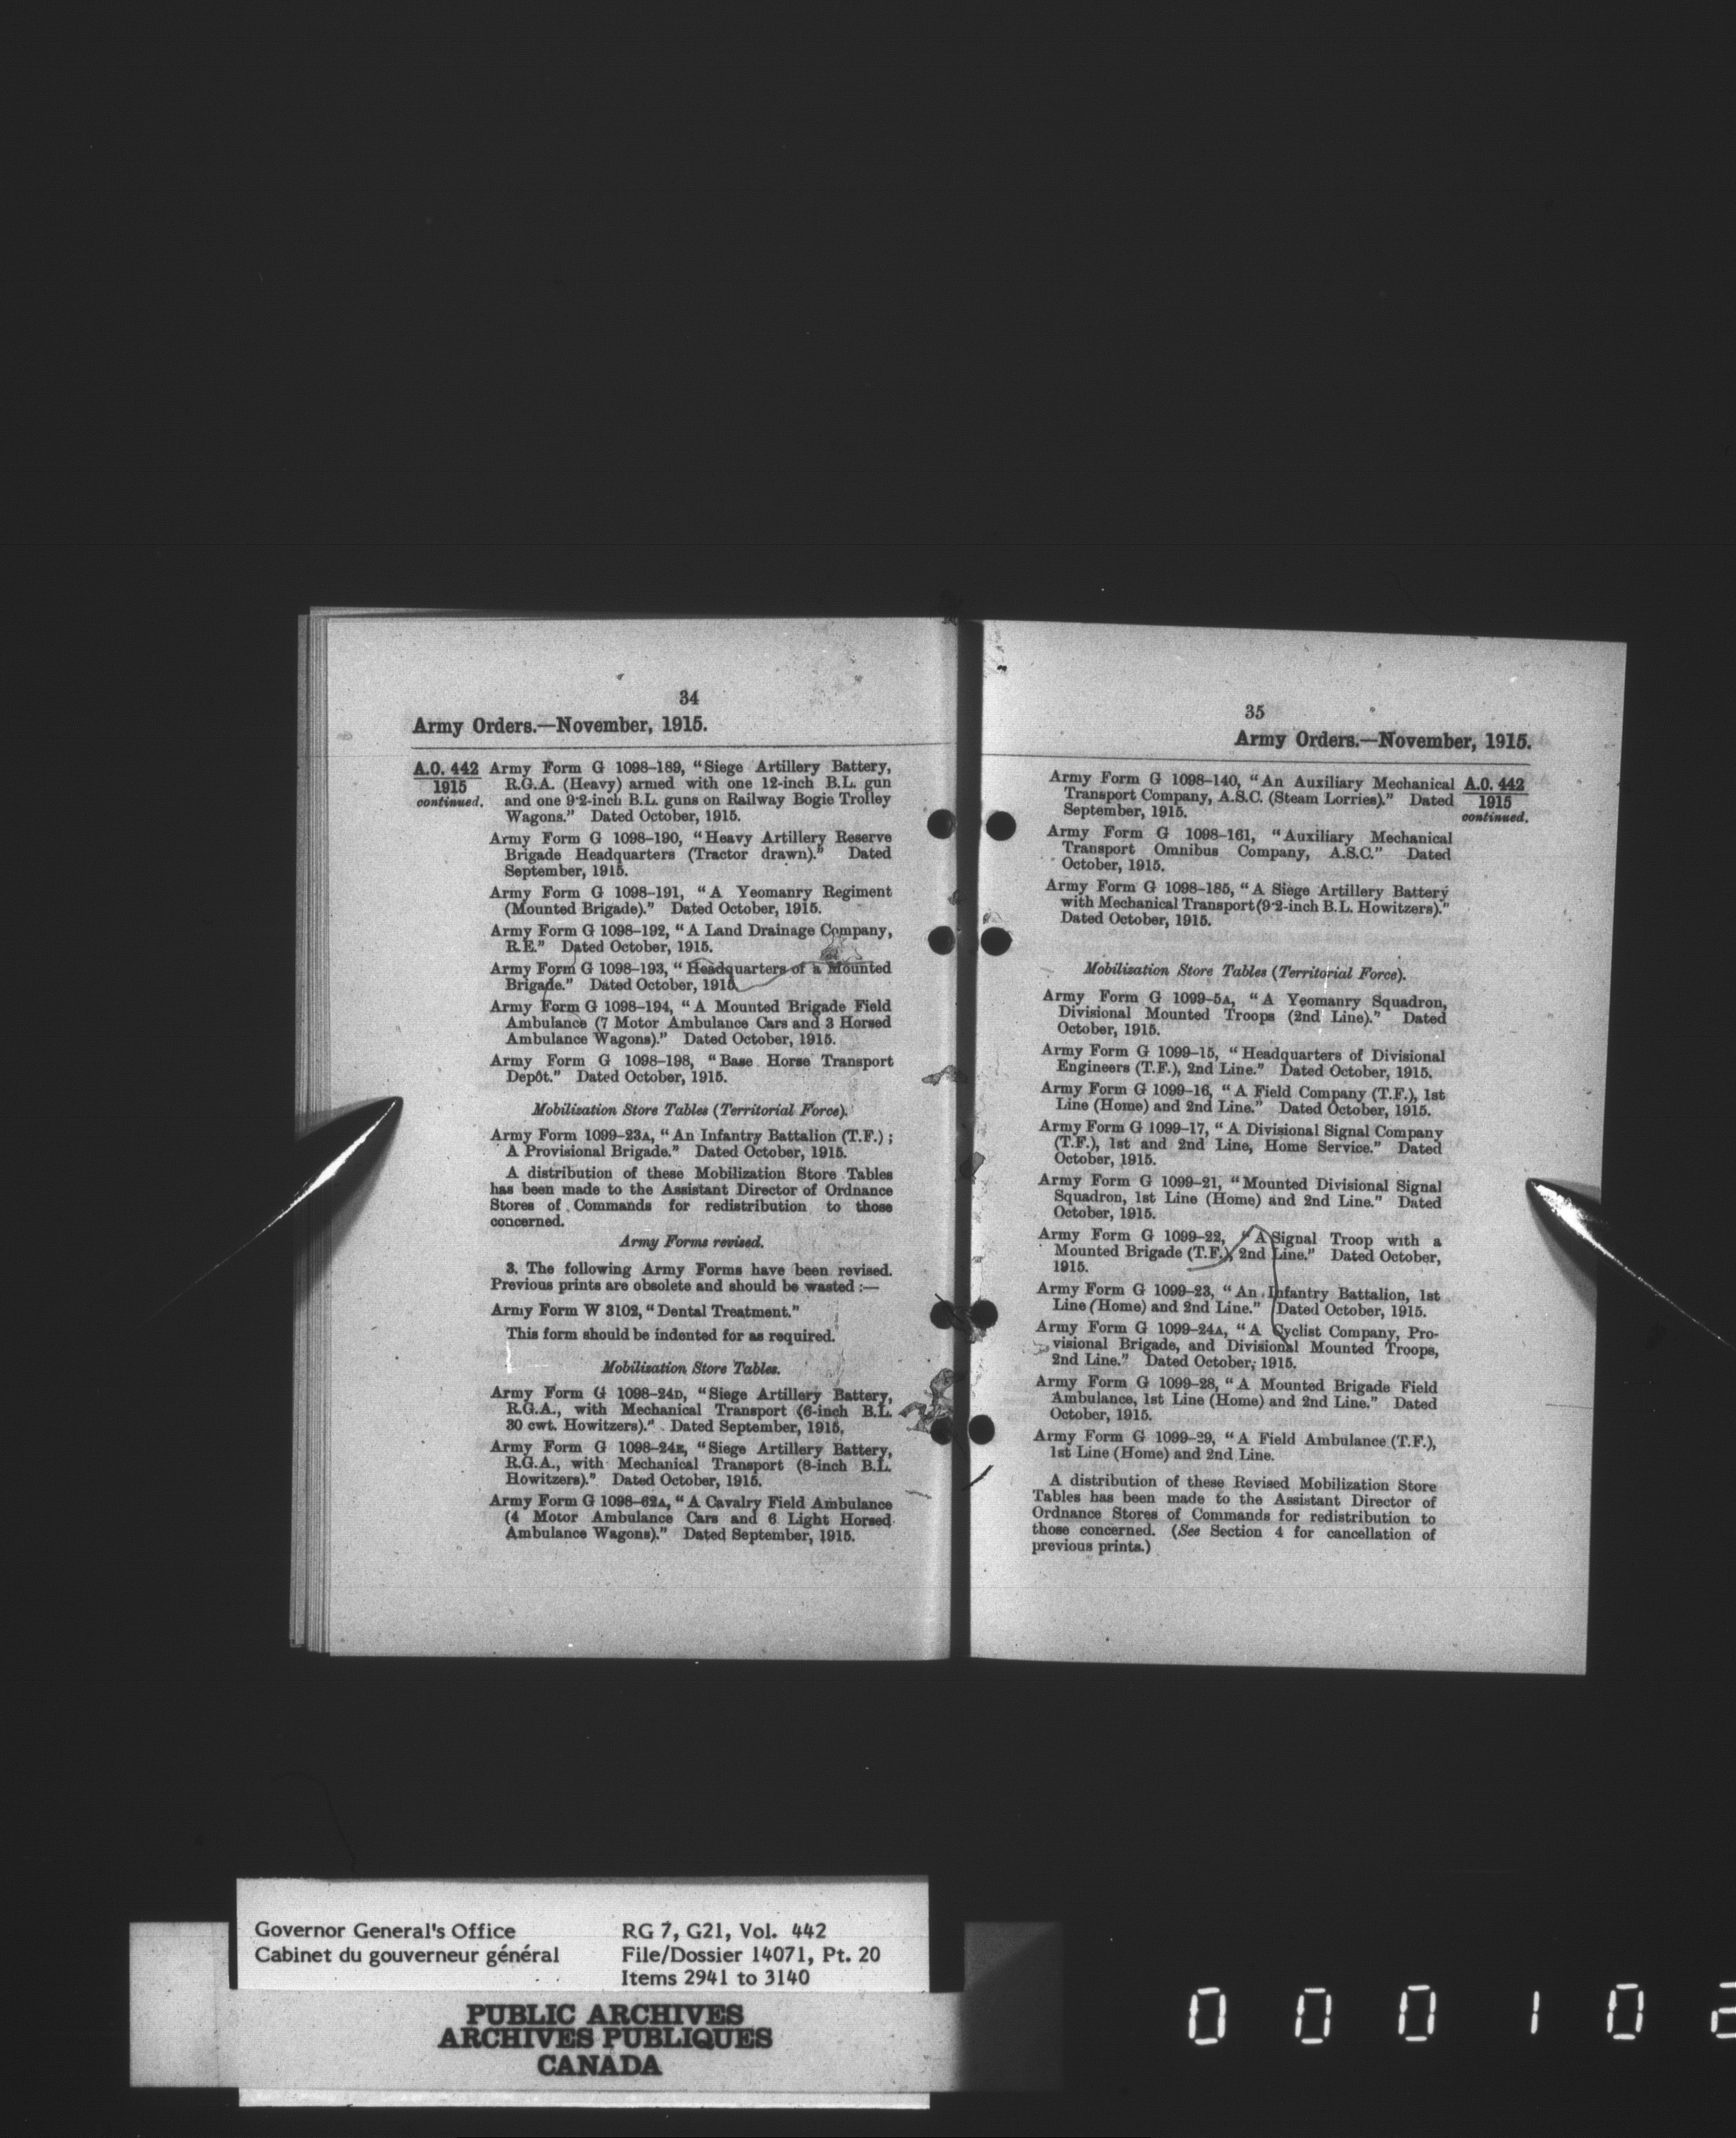 34
Army Orders.—November, 1915.
A.O. 442
1915
continued.
Army Form G 1098–189, “Siege Artillery Battery,
R.G.A. (Heavy) armed with one 12-inch B.L. gun
and one 9·2-inch B.L. guns on Railway Bogie Trolley
Wagons.” Dated October, 1915.
Army Form G 1098–190, “Heavy Artillery Reserve
Brigade Headquarters (Tractor drawn).” Dated
September, 1915.
Army Form G 1098–191, “A Yeomanry Regiment
(Mounted Brigade).” Dated October, 1915.
Army Form G 1098–192, “A Land Drainage Company,
R.E.” Dated October, 1915.
Army Form G 1098–193, “Headquarters of a Mounted
Brigade.” Dated October, 1915.
Army Form G 1098–194, “A Mounted Brigade Field
Ambulance (7 Motor Ambulance Cars and 3 Horsed
Ambulance Wagons).” Dated October, 1915.
Army Form G 1098–198, “Base Horse Transport
Depôt.” Dated October, 1915.
Mobilization Store Tables (Territorial Force).
Army Form 1099–23A, “An Infantry Battalion (T.F.);
A Provisional Brigade.” Dated October, 1915.
A distribution of these Mobilization Store Tables
has been made to the Assistant Director of Ordnance
Stores of Commands for redistribution to those
concerned.
Army Forms revised.
3. The following Army Forms have been revised.
Previous prints are obsolete and should be wasted:—
Army Form W 3102, “Dental Treatment.”
This form should be indented for as required.
Mobilization Store Tables.
Army Form G 1098–24D, “Siege Artillery Battery,
R.G.A., with Mechanical Transport (6-inch B.L.
30 cwt. Howitzers).” Dated September, 1915.
Army Form G 1098–24E, “Siege Artillery Battery,
R.G.A., with Mechanical Transport (8-inch B.L.
Howitzers).” Dated October, 1915.
Army Form G 1098–62A, “A Cavalry Field Ambulance
(4 Motor Ambulance Cars and 6 Light Horsed
Ambulance Wagons).” Dated September, 1915.
35
Army Orders.—November, 1915.
A.O. 442
1915
continued.
Army Form G 1098–140, “An Auxiliary Mechanical
Transport Company, A.S.C. (Steam Lorries).” Dated
September, 1915.
Army Form G 1098–161, “Auxiliary Mechanical
Transport Omnibus Company, A.S.C.” Dated
October, 1915.
Army Form G 1098–185, “A Siege Artillery Battery
with Mechanical Transport (9·2-inch B.L. Howitzers).”
Dated October, 1915.
Mobilization Store Tables (Territorial Force).
Army Form G 1099–5A, “A Yeomanry Squadron,
Divisional Mounted Troops (2nd Line).” Dated
October, 1915.
Army Form G 1099–15, “Headquarters of Divisional
Engineers (T.F.), 2nd Line.” Dated October, 1915.
Army Form G 1099–16, “A Field Company (T.F.), 1st
Line (Home) and 2nd Line.” Dated October, 1915.
Army Form G 1099–17, “A Divisional Signal Company
(T.F.), 1st and 2nd Line, Home Service.” Dated
October, 1915.
Army Form G 1099–21, “Mounted Divisional Signal
Squadron, 1st Line (Home) and 2nd Line.” Dated
October, 1915.
Army Form G 1099–22, “A Signal Troop with a
Mounted Brigade (T.F.), 2nd Line.” Dated October,
1915.
Army Form G 1099–23, “An Infantry Battalion, 1st
Line (Home) and 2nd Line.” Dated October, 1915.
Army Form G 1099–24A, “A Cyclist Company, Pro-
visional Brigade, and Divisional Mounted Troops,
2nd Line.” Dated October, 1915.
Army Form G 1099–28, “A Mounted Brigade Field
Ambulance, 1st Line (Home) and 2nd Line.” Dated
October, 1915.
Army Form G 1099–29, “A Field Ambulance (T.F.),
1st Line (Home) and 2nd Line.
A distribution of these Revised Mobilization Store
Tables has been made to the Assistant Director of
Ordnance Stores of Commands for redistribution to
those concerned. (See Section 4 for cancellation of
previous prints.)
Governor General's Office
Cabinet du gouverneur général
RG 7, G21, Vol. 442
File/Dossier 14071, Pt. 20
Items 2941 to 3140
PUBLIC ARCHIVES
ARCHIVES PUBLIQUES
CANADA
0 0 0 1 0